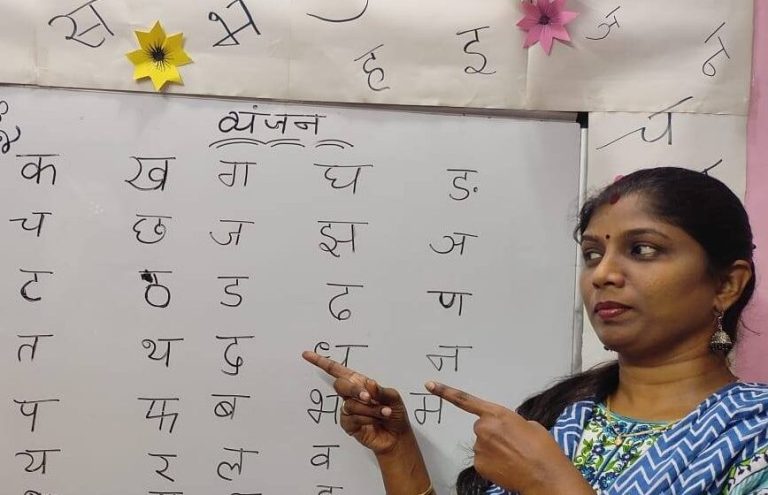 स भ ह इ ञ न
च
व्यंजन
क ख ग घ ङ
च छ ज झ ञ
ट ठ ड ढ ण
त थ द ध न
प फ ब भ म
य र ल व